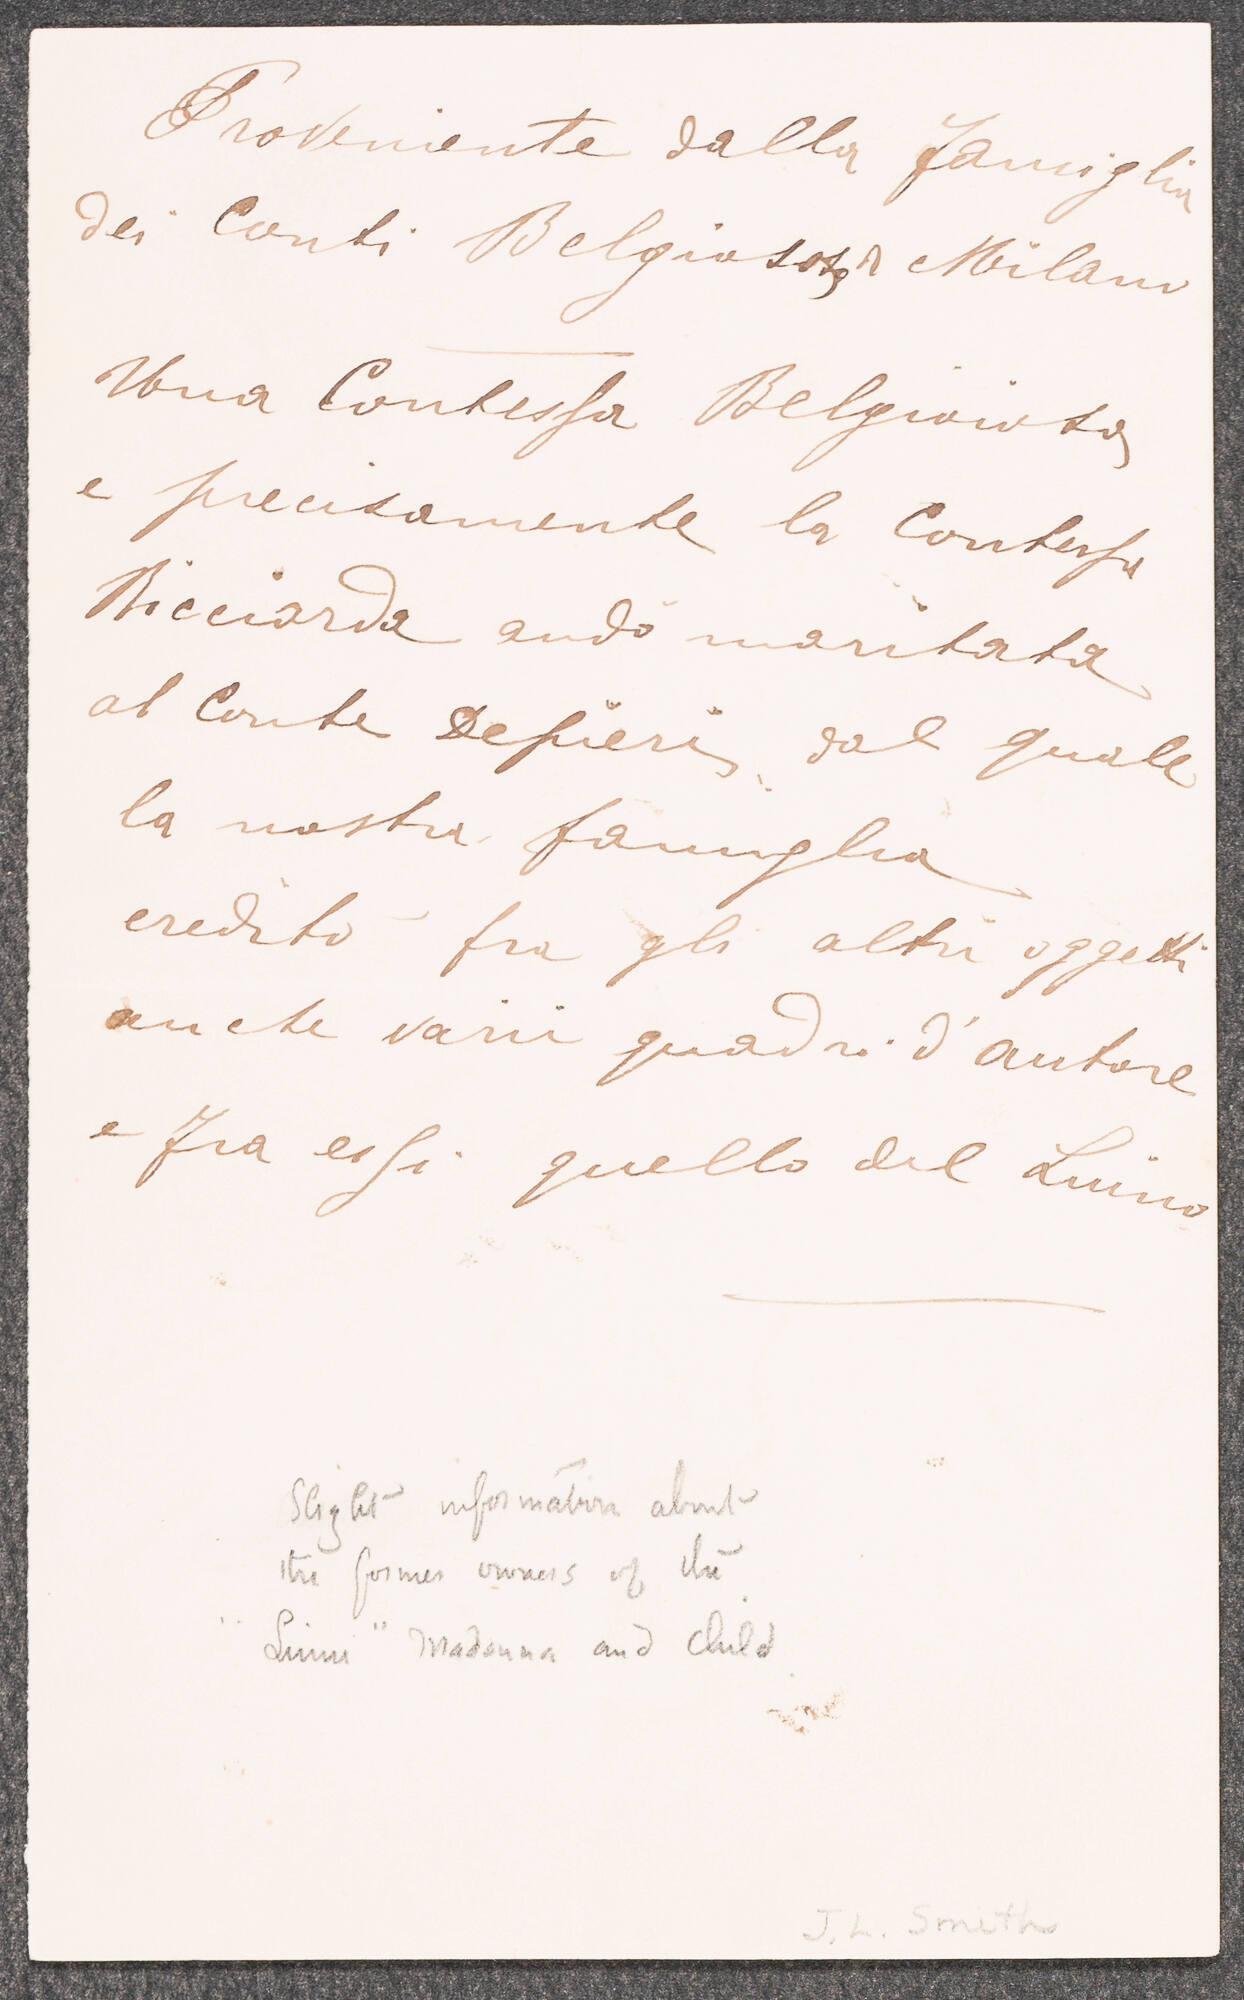 Proveniente dalla famiglia
dei Conti Belgiososo di Milano
Una Contessa Belgioiosa,
e precisamente la Contessa
Ricciarda andò maritata
al Conte Depieri, dal quale
la nostra famiglia
ereditò fra gli altri oggetti
anche varii quadri d'autore
e fra essi quello del Luino
Slight information about
the former owners of the
"Luini" Madonna and Child.
J. L. Smith